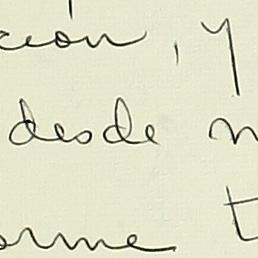 ción, y
desde
orme